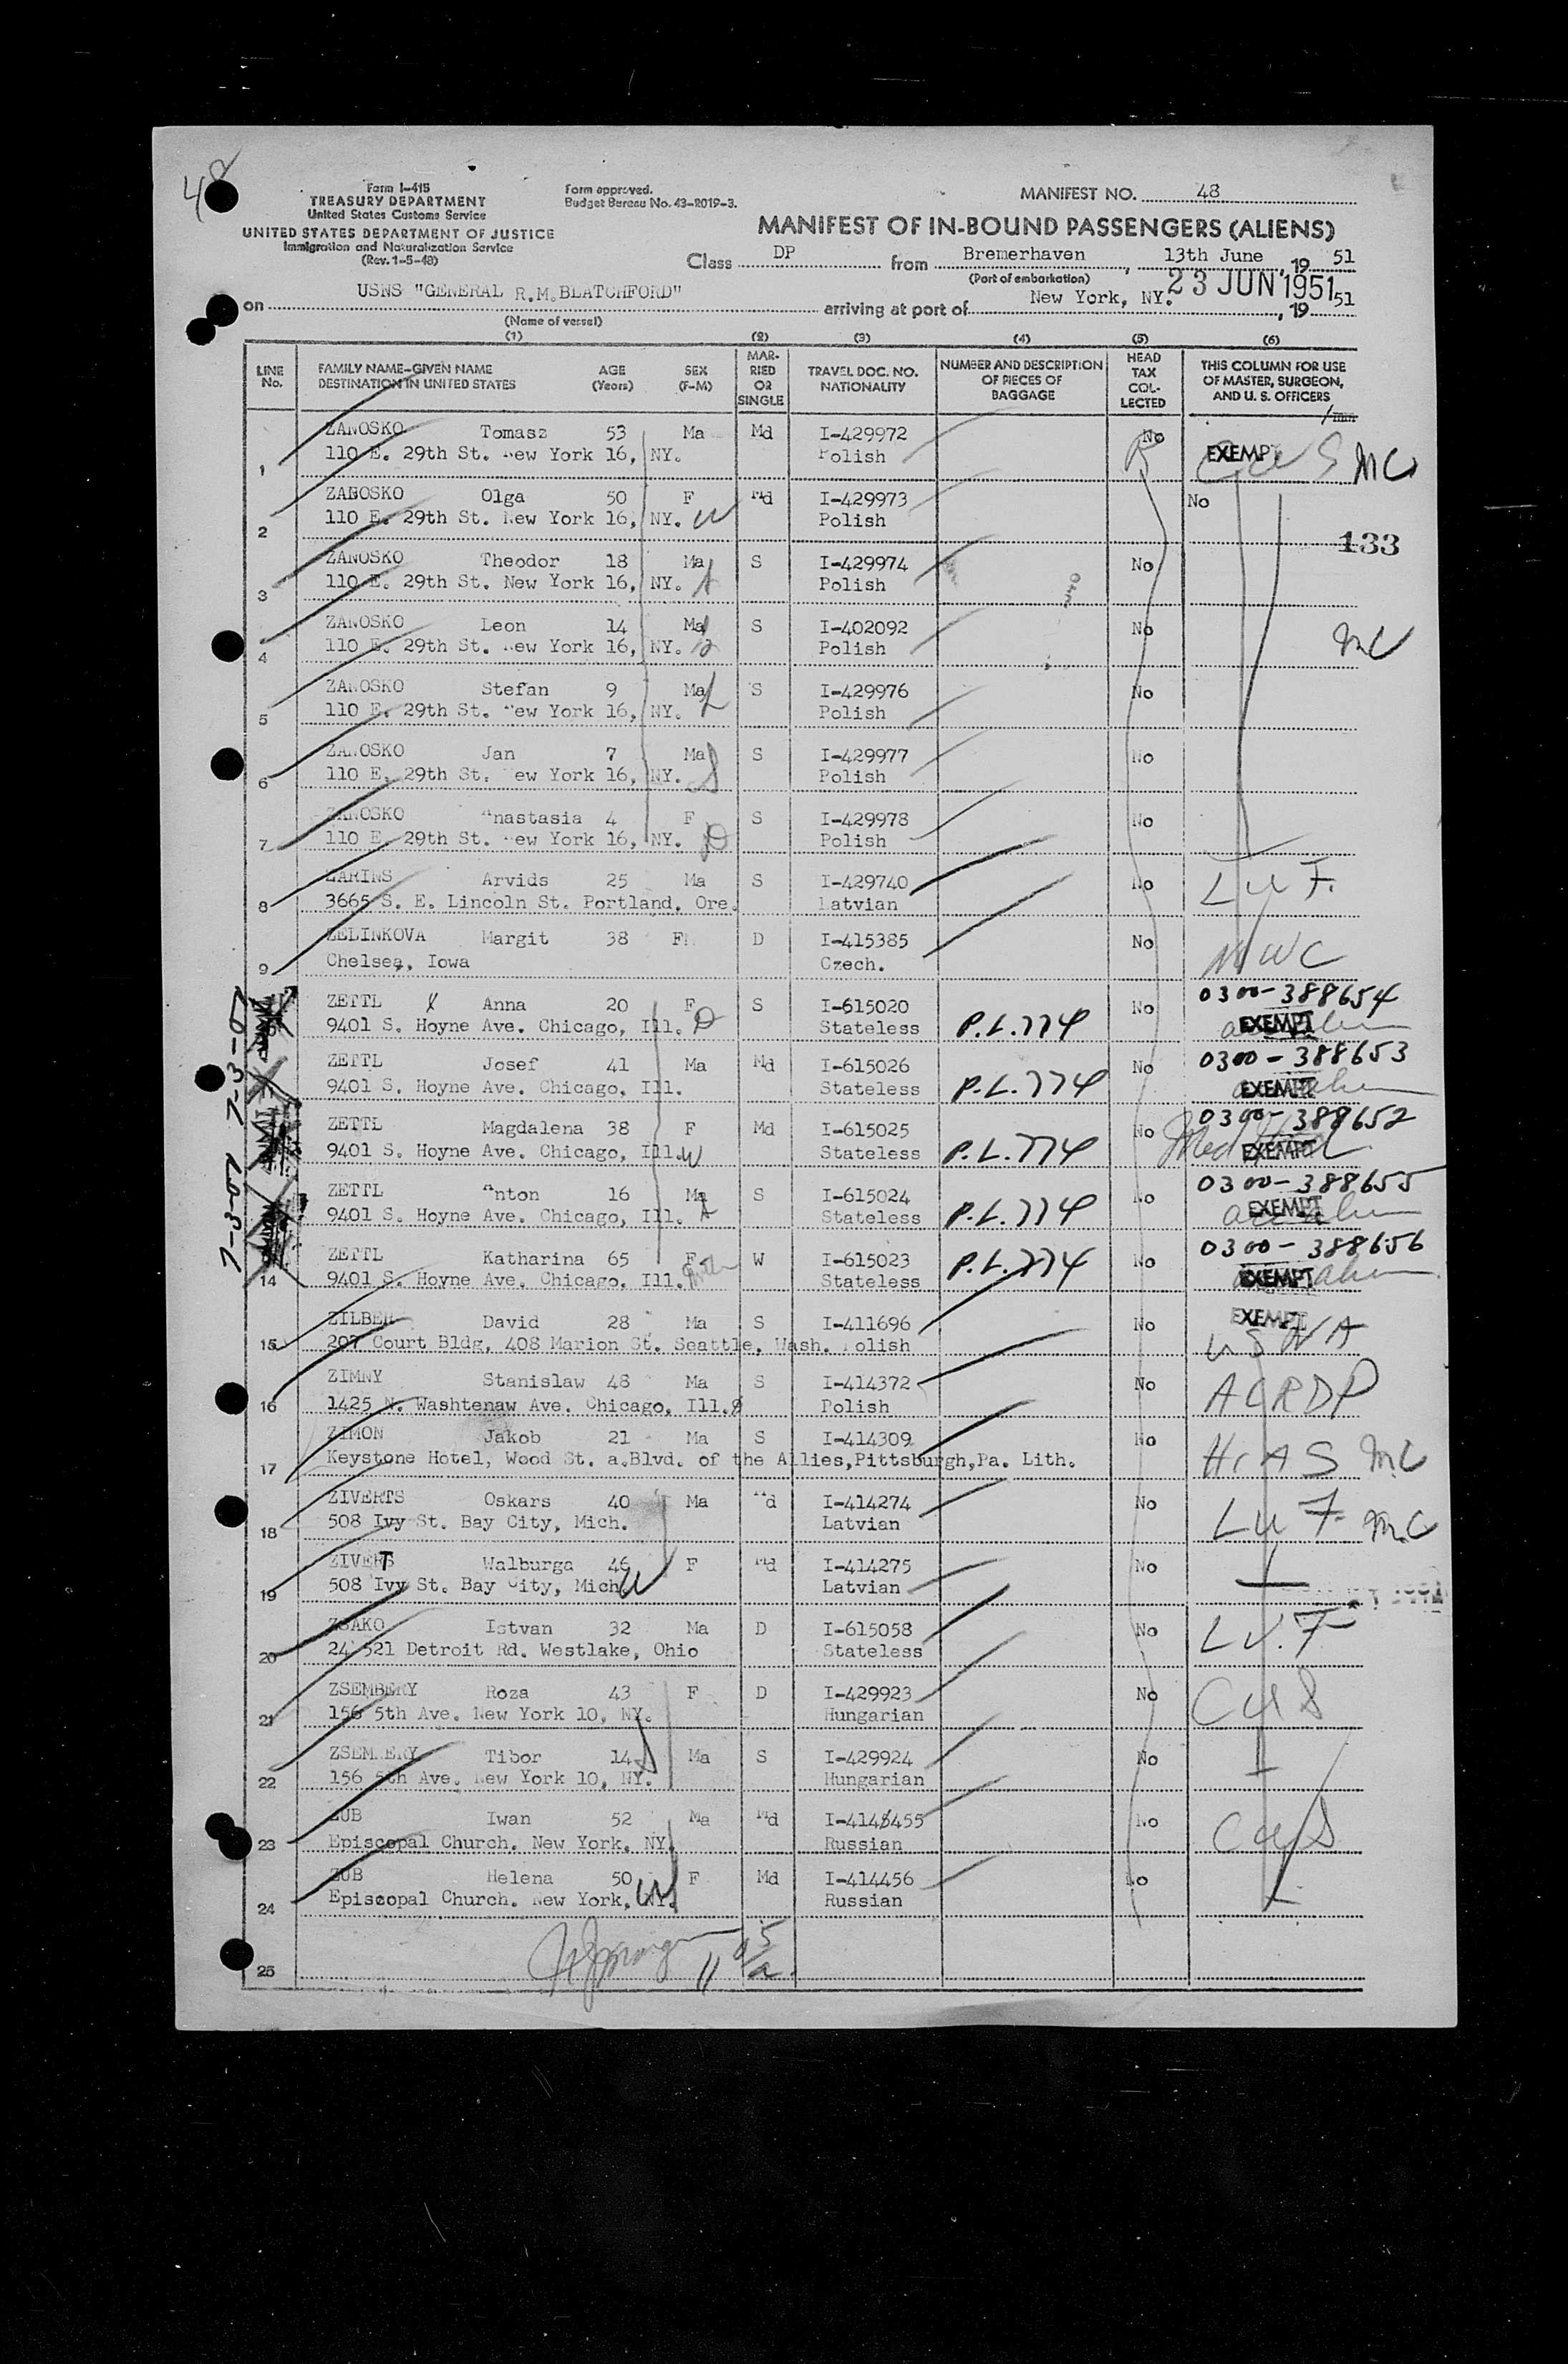 48
Form I-415
TREASURY DEPARTMENT
United States Customs Service
UNITED STATES DEPARTMENT OF JUSTICE
Immigration and Naturalization Service
(Rev. 1-5-48)
Form approved.
Budget Bureau No. 43-R019-3.
MANIFEST NO. 48
MANIFEST OF IN-BOUND PASSENGERS (ALIENS)
Class DP from Bremerhaven, 13th June, 19 51
(Port of embarkation)
on USNS "GENERAL R.M.BLATCHFORD" arriving at port of New York, NY. 23 JUN 1951, 19 51
(Name of vessel)
(1) (2) (3) (4) (5) (6)
LINE No. FAMILY NAME-GIVEN NAME DESTINATION IN UNITED STATES AGE (Years) SEX (F-M) MARRIED OR SINGLE TRAVEL DOC. NO. NATIONALITY NUMBER AND DESCRIPTION OF PIECES OF BAGGAGE HEAD TAX COLLECTED THIS COLUMN FOR USE OF MASTER, SURGEON, AND U. S. OFFICERS
ZANOSKO Tomasz 53 Ma Md I-429972 No EXEMPT MC
1 110 E. 29th St. New York 16, NY. Polish
ZANOSKO Olga 50 F Md I-429973 No
2 110 E. 29th St. New York 16, NY. W Polish
133
ZANOSKO Theodor 18 Ma S I-429974 No
3 110 E. 29th St. New York 16, NY. Polish
ZANOSKO Leon 14 Ma S I-402092 No MC
4 110 E. 29th St. New York 16, NY. Polish
ZANOSKO Stefan 9 Ma S I-429976 No
5 110 E. 29th St. New York 16, NY. Polish
ZANOSKO Jan 7 Ma S I-429977 No
6 110 E. 29th St. New York 16, NY. Polish
ZANOSKO Anastasia 4 F S I-429978 No
7 110 E. 29th St. New York 16, NY. D Polish
ZARINS Arvids 25 Ma S I-429740 No Lu F.
8 3665 S. E. Lincoln St. Portland. Ore. Latvian
ZELINKOVA Margit 38 F D I-415385 No NWC
9 Chelsea, Iowa Czech.
ZETTL X Anna 20 F S I-615020 No 0300-388654
9401 S. Hoyne Ave. Chicago, Ill. D Stateless P.L.774 EXEMPT
ZETTL Josef 41 Ma Md I-615026 No 0300-388653
9401 S. Hoyne Ave. Chicago, Ill. Stateless P.L.774 EXEMPT
ZETTL Magdalena 38 F Md I-615025 No 0300-388652
9401 S. Hoyne Ave. Chicago, Ill. W Stateless P.L.774 EXEMPT
ZETTL Anton 16 Ma S I-615024 No 0300-388655
9401 S. Hoyne Ave. Chicago, Ill. Stateless P.L.774 EXEMPT
ZETTL Katharina 65 F W I-615023 P.L.774 No 0300-388656
14 9401 S. Hoyne Ave. Chicago. Ill. Stateless EXEMPT
7-3-07 7-3-07
ZILBER David 28 Ma S I-411696 No EXEMPT
15 207 Court Bldg, 408 Marion St. Seattle, Wash. Polish USNA
ZIMNY Stanislaw 48 Ma S I-414372 No ACRDP
16 1425 N. Washtenaw Ave. Chicago, Ill. Polish
ZIMON Jakob 21 Ma S I-414309 No HIAS MC
17 Keystone Hotel, Wood St. a.Blvd. of the Allies,Pittsburgh,Pa. Lith.
ZIVERTS Oskars 40 Ma Md I-414274 No Lu F. MC
18 508 Ivy St. Bay City, Mich. Latvian
ZIVERT Walburga 46 F Md I-414275 No
19 508 Ivy St. Bay City, Mich. W Latvian
ZSAKO Istvan 32 Ma D I-615058 No Lu.F
20 24 521 Detroit Rd. Westlake, Ohio Stateless
ZSEMBERY Roza 43 F D I-429923 No CWS
21 156 5th Ave. New York 10, NY. Hungarian
ZSEMBERY Tibor 14 Ma S I-429924 No
22 156 5th Ave. New York 10, NY. Hungarian
ZUB Iwan 52 Ma Md I-4148455 No CWS
23 Episcopal Church. New York. NY. Russian
ZUB Helena 50 F Md I-414456 No
24 Episcopal Church. New York, NY. W Russian
25